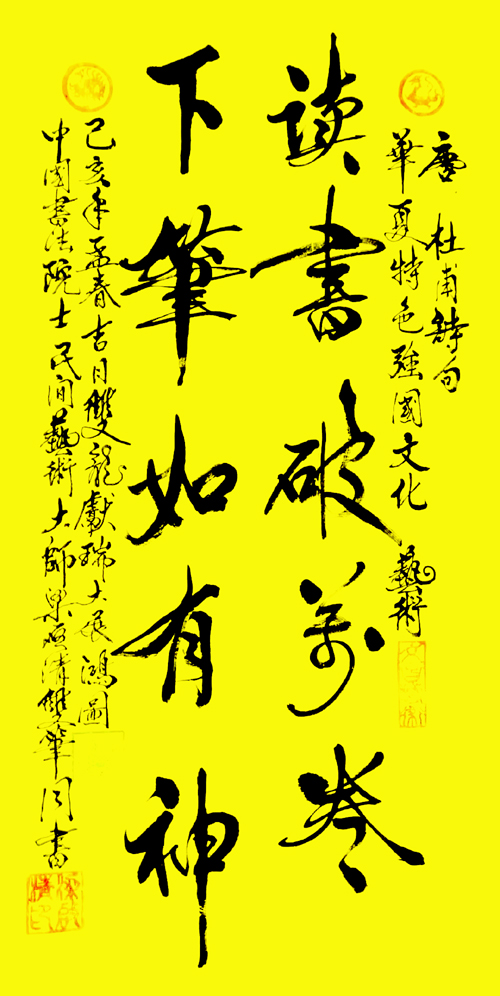 唐 杜甫詩句
華夏特色强國文化 藝術
读書破萬卷
下筆如有神
己亥年孟春吉日雙龍獻瑞大展鴻圖
中國書法院士民间藝術大師清雙筆同書